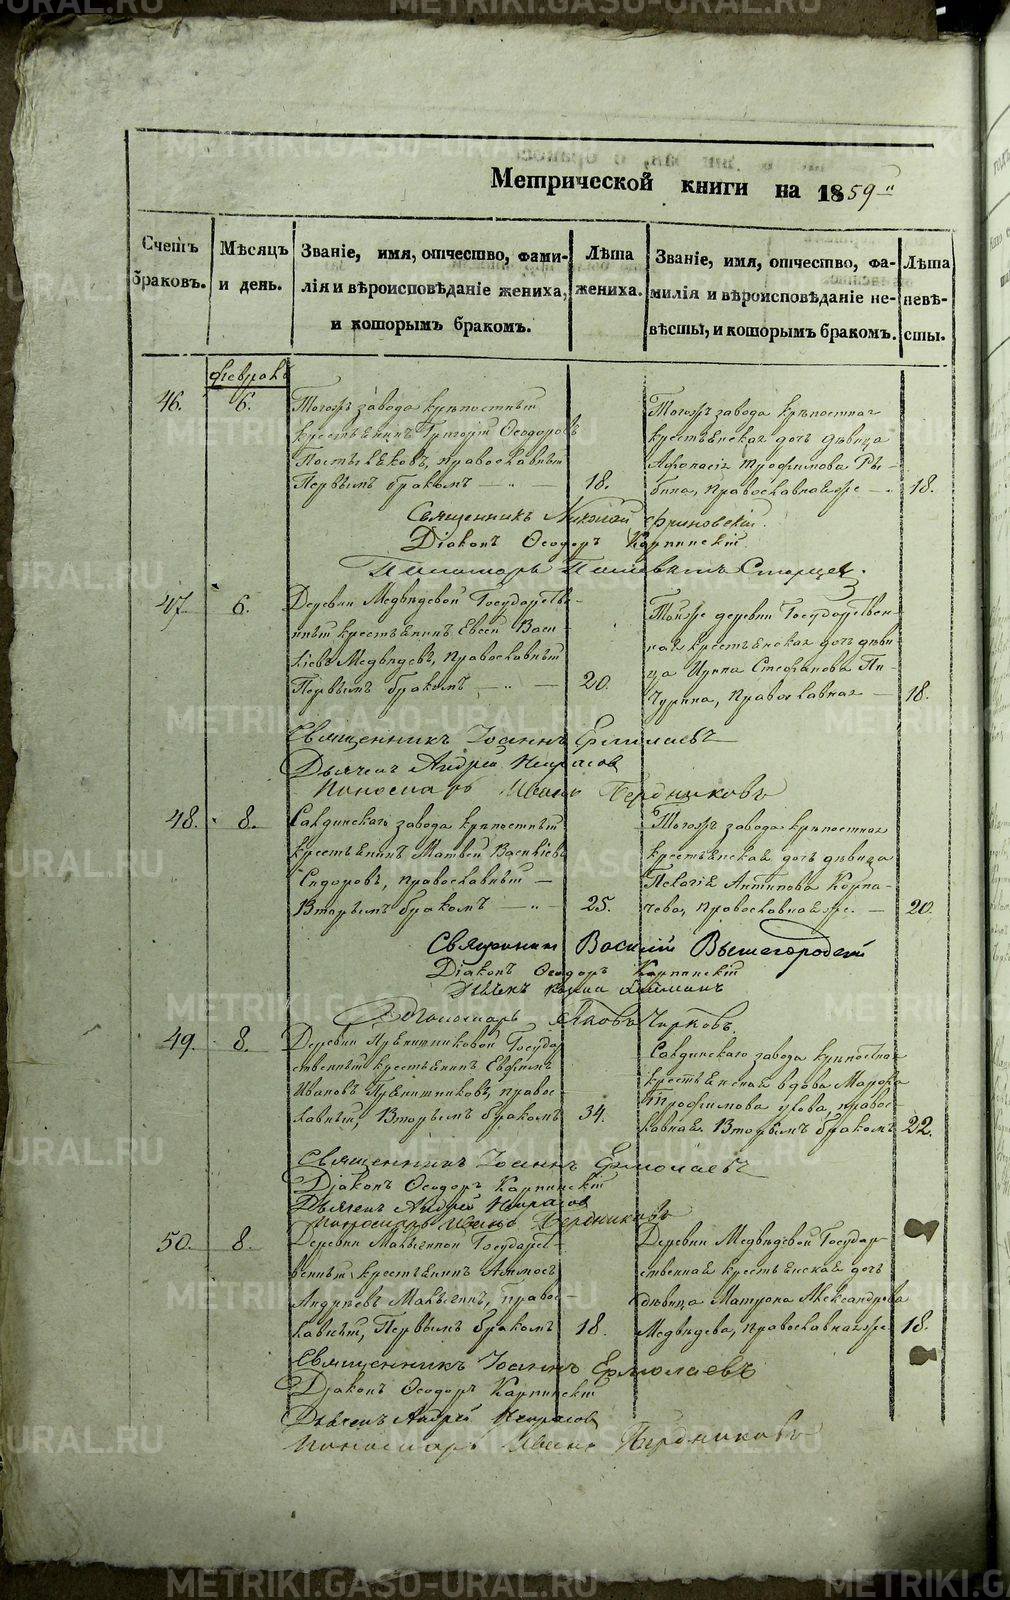 METRIKI.GASO-URAL.RU
Метрической книги на 1859 й
Счетъ браковъ.
Мѣсяцъ и день.
Званіе, имя, отчество, фами-
лія и вѣроисповѣданіе жениха,
и которымъ бракомъ.
Лѣта жениха.
Званіе, имя, отчество, фа-
милія и вѣроисповѣданіе не-
вѣсты, и которымъ бракомъ.
Лѣта невѣ-
сты.
Февраль
46.
6.
Тогожъ завода крѣпостный
крестьянинъ Григорій Ѳеодоровъ
православный
Первымъ бракомъ
18.
Тогожъ завода крѣпостная
крестьянская дочь дѣвица
Афанасія Трофимова Ря-
бина, православная же
18.
Священникъ Николай
Діаконъ Ѳеодоръ Карпинскій
Пономарь Старцев.
47
6.
Деревни Медвѣдевой Государстве-
нный крестьянинъ Евсей Васи
льевъ Медвѣдевъ, православный
Первымъ бракомъ
20.
Тойже деревни Государствен-
ная крестьянская дочь дѣви-
ца Стефанова Пи-
чурина, Православная
18.
Священникъ Іоаннъ Ермолаевъ
Дьячекъ Андрей Некрасов
Пономарь Иванъ Бердниковъ
48.
8.
Салдинскаго завода крѣпостный
крестьянинъ Матвей Васильевъ
Сидоровъ, православный
Вторымъ бракомъ
25.
Тогожъ завода крѣпостная
крестьянская дочь дѣвица
Пелагія Антипова Корпа-
чева, православная же.
20.
Священник Василій Вышегородский
Діаконъ Ѳеодоръ Карпинскій
Пономарь Яковъ Чирковъ.
49.
8.
Деревни Прянишниковой Государ
ственный крестьянинъ Евфимъ
Ивановъ Прянишниковъ, право-
славный, Вторымъ бракомъ
34.
Салдинскаго завода крѣпостная
крестьянская вдова Марфа
Трофимова правос-
лавная Вторымъ бракомъ
22.
Священникъ Іоаннъ Ермолаевъ
Діаконъ Ѳеодоръ Карпинскій
Дьячекъ Андрей Некрасов
Пономарь Иванъ Бердниковъ
50.
8.
Деревни Малыгиной Государст-
венный крестьянинъ
Андреевъ Малыгинъ, правос-
лавный, Первымъ бракомъ
18.
Деревни Медвѣдевой Государ-
ственная крестьянская дочь
дѣвица Матрона Александрова
Медвѣдева, православная же
18.
Священникъ Іоаннъ Ермолаевъ
Діаконъ Ѳеодоръ Карпинскій
Дьячекъ Андрей Некрасов
Пономарь Иванъ Бердниковъ